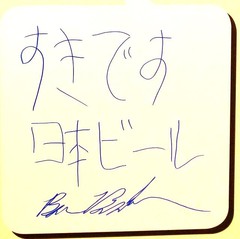 すきです
日本ビール